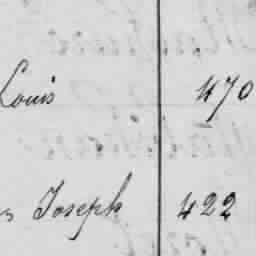 Louis 470
Joseph 422